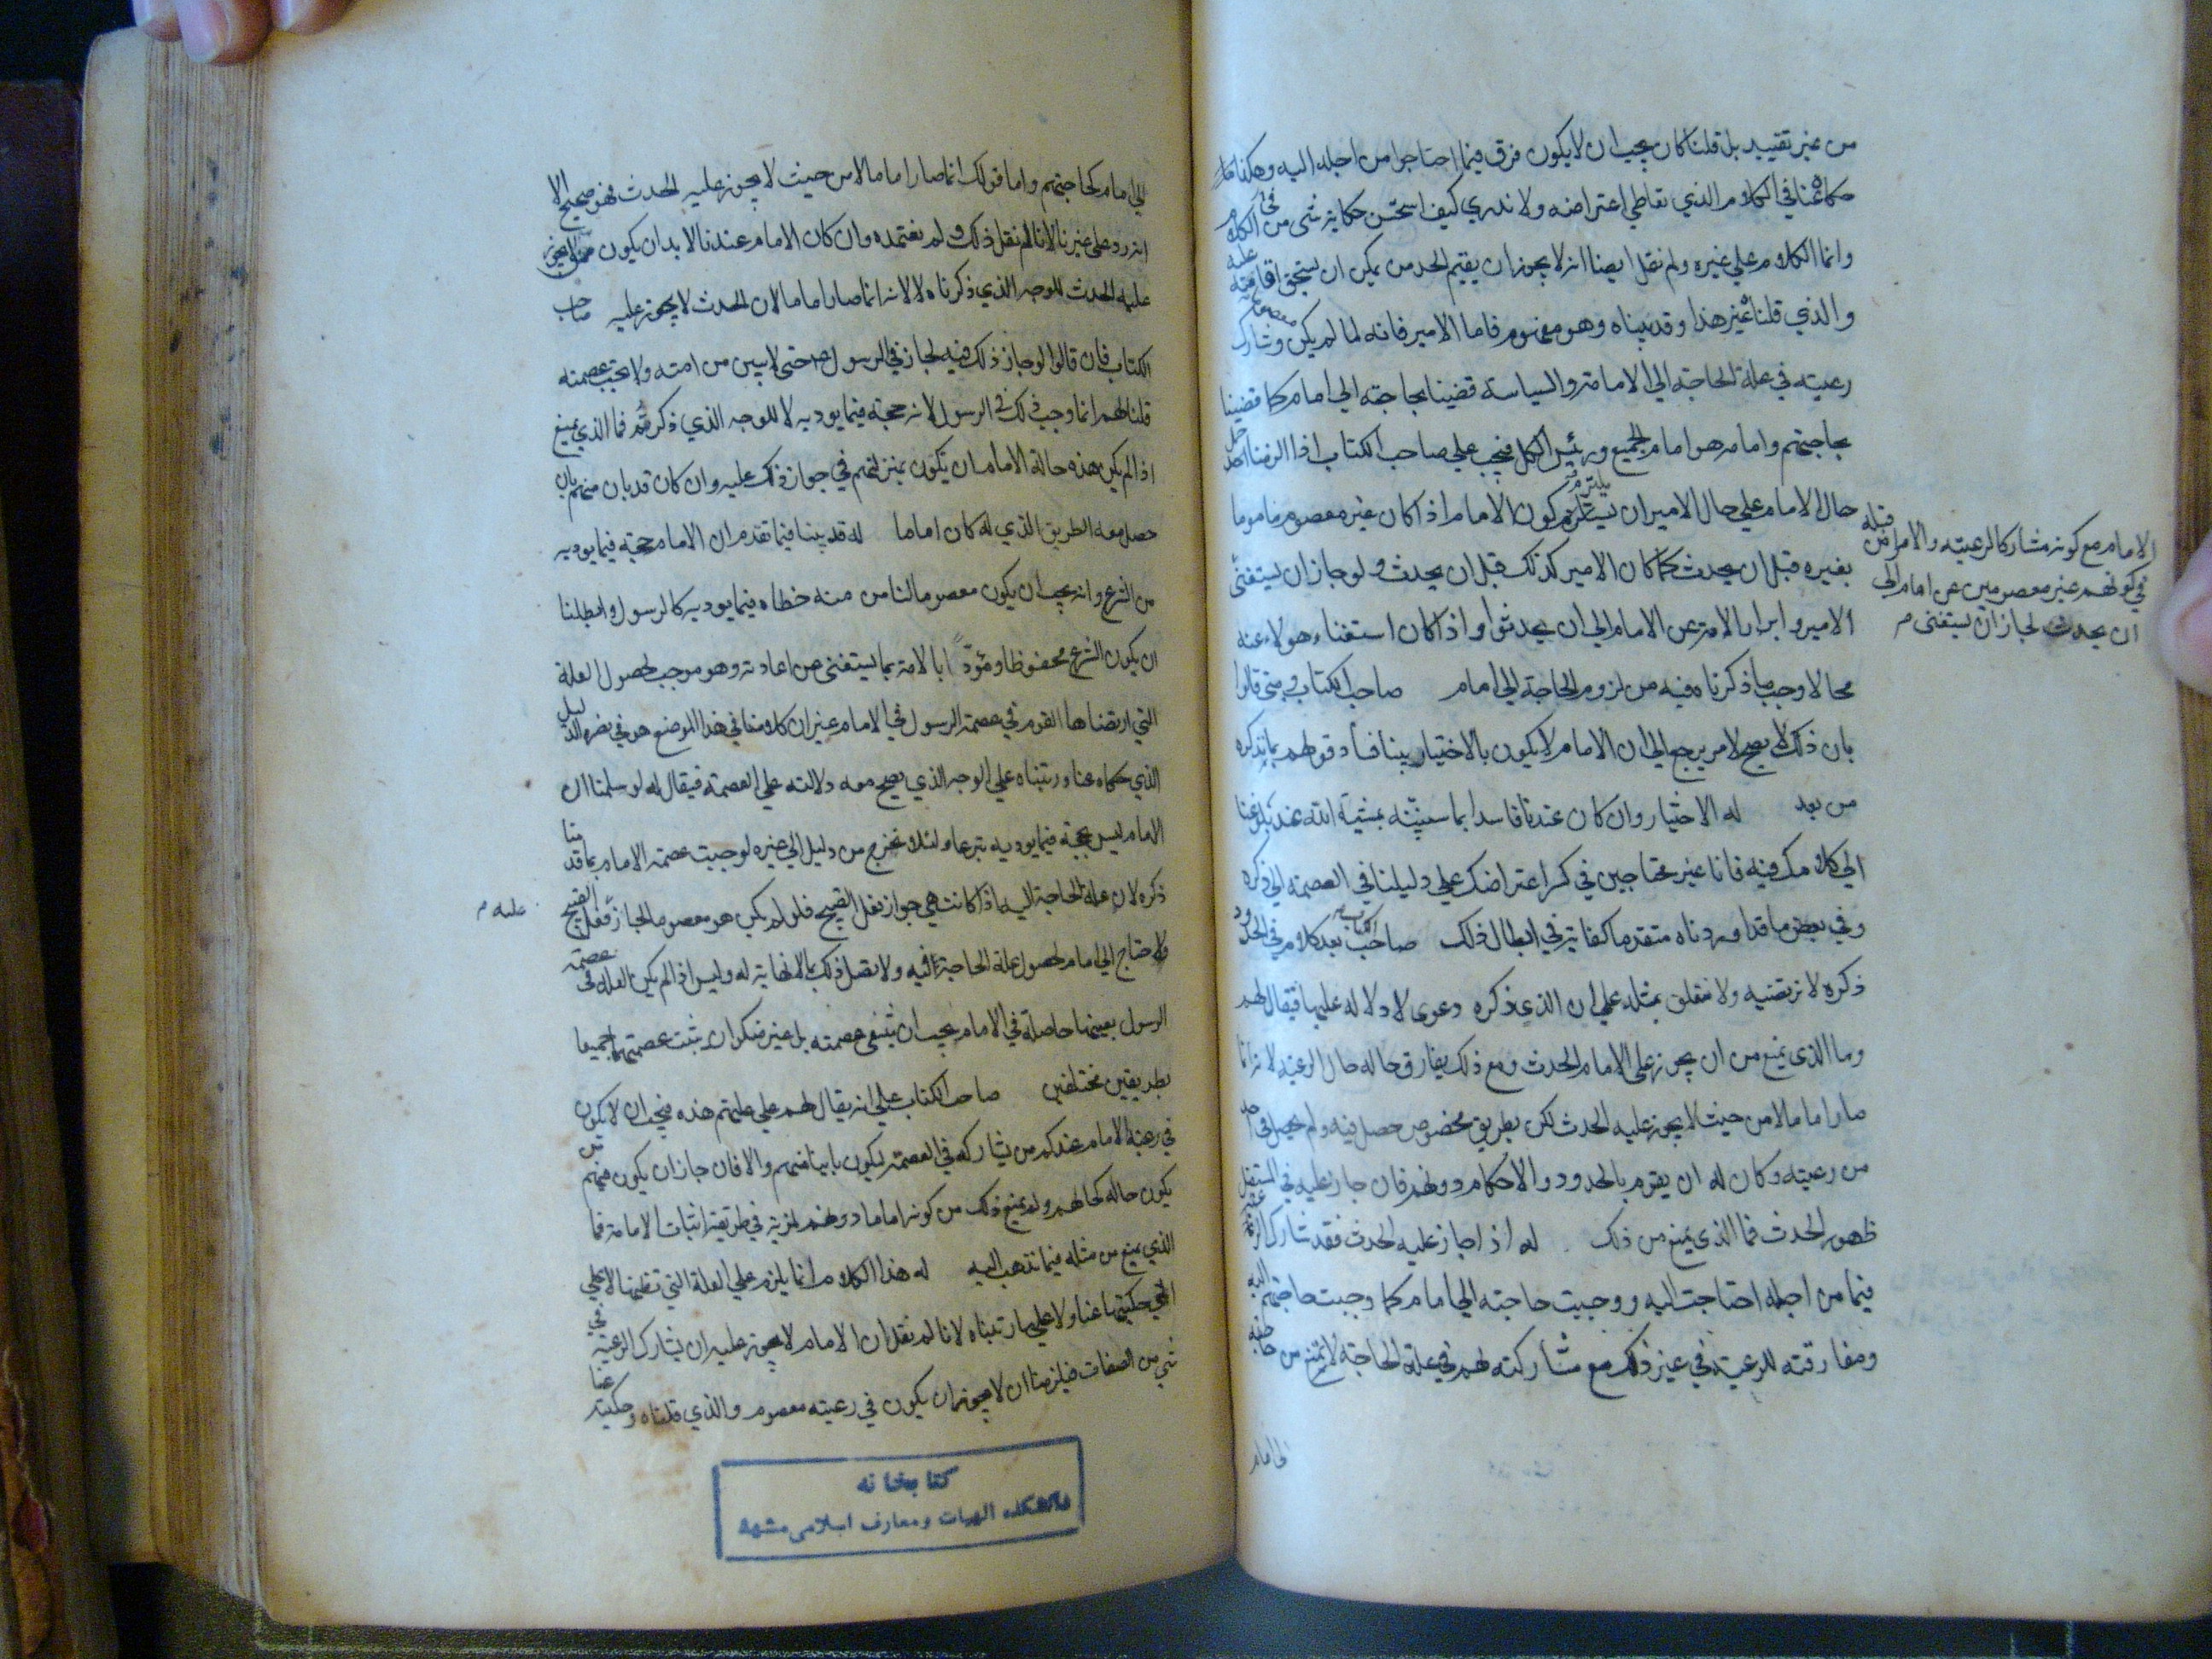 من غير تقييد بل قلنا كان يجب ان لا يكون فرق فيما احتاجوا من اجله اليه وهكذا
حكاه عنا في الكلام الذي تعاطي اعتراضه ولا ندري كيف استحسن حكاية شى من الكلام
وانما الكلام علي غيره ولم نقل ايضا انه لا يجوز ان يقيم الحد من يمكن ان يستحق اقامته عليه
والذي قلناه غير هذا وقد بيناه وهو مفهوم فاما الامير فانه لما لم يكن معصوما وشارك
رعيته في علة الحاجة الي الامامة والسياسة قضينا بحاجته الي امام كما قضينا
بحاجتهم وامامه هو امام الجميع ورئيس الكل فيجب علي صاحب الكتاب اذا الزمنا حمل
حال الامام علي حال الامير ان يلتزم كون الامام اذا كان غير معصوم ماموما
بغيره قبل ان يحدث كما كان الامير كذلك قبل ان يحدث ولو جاز ان يستغني
الامام مع كونه مشاركا لرعيته والامراء قبله
في كونهم غير معصومين عن امام الي
ان يحدث لجاز ان يستغنى م
الامير وابرار الامة عن الامام الي ان يحدثوا واذا كان استغناء هولاء عنه
محالا وجب ما ذكرناه فيه من لزوم الحاجة الي امام صاحب الكتاب ومتى قالوا
بان ذلك لا يصح لامر يرجع الي ان الامام لا يكون بالاختيار بينا فساد قولهم بما نذكره
من بعد له الاختيار وان كان عندنا فاسدا بما سنبينه بمشيئة الله عند بلوغنا
الي كلامك فيه فانا غير محتاجين في كسر اعتراضك علي دليلنا في العصمة الي ذكره
وفي بعض ما قد اوردناه متقدما كفاية في ابطال ذلك صاحب الكتاب بعد كلام في الحدود
ذكره لا نرتضيه ولا نتعلق بمثله علي ان الذي ذكره دعوى لا دلالة عليها فيقال لهم
وما الذي يمنع من ان يجوز علي الامام الحدث ومع ذلك يفارق حاله حال الرعية لانه انما
صار اماما لا من حيث لا يجوز عليه الحدث لكن بطريق مخصوص حصل فيه ولم يحصل في احد
من رعيته وكان له ان يقوم بالحدود والاحكام دونهم فان جاز عليه في المستقبل
ظهور الحدث فما الذي يمنع من ذلك له اذا جاز عليه الحدث فقد شارك الرعية
فيما من اجله احتاجت اليه ووجبت حاجته الي امام كما وجبت حاجتهم اليه
ومفارقته للرعية في غير ذلك مع مشاركته لهم في علة الحاجة لا تمنع من حاجته
الي امام
الي امام كحاجتهم واما قولك انما صار اماما لا من حيث لا يجوز عليه الحدث فهو صحيح الا
انه رد علي غيرنا لانا لم نقل ذلك ولم نعتمده وان كان الامام عندنا لا بد ان يكون ممن لا يجوز
عليه الحدث للوجه الذي ذكرناه لا لانه انما صار اماما لان الحدث لا يجوز عليه صاحب
الكتاب فان قالوا لو جاز ذلك فيه لجاز في الرسول حتى لا يبين من امته ولا يجب عصمته
قلنا لهم انما وجب ذلك في الرسول لانه حجة فيما يوديه لا للوجه الذي ذكرتم فما الذي يمنع
اذا لم يكن هذه حالة الامام ان يكون بمنزلتهم في جواز ذلك عليه وان كان قد بان منهم بان
حصل معه الطريق الذي له كان اماما له قد بينا فيما تقدم ان الامام حجة فيما يوديه
من الشرع وانه يجب ان يكون معصوما لنامن منه خطاه فيما يوديه كالرسول وابطلنا
ان يكون الشرع محفوظا ومؤدّا بالامة بما يستغنى عن اعادته وهو موجب لحصول العلة
التي ارتضاها القوم في عصمة الرسول في الامام غير ان كلامنا في هذا الموضع هو في نصرة الدليل
الذي حكاه عنا ورتبناه علي الوجه الذي يصح معه دلالته علي العصمة فيقال له لو سلمنا ان
الامام ليس بحجة فيما يوديه تبرعا ولئلا نخرج من دليل الي غيره لوجبت عصمة الامام بما قدمنا
ذكره لان علة الحاجة اليه اذا كانت هي جواز فعل القبيح فلو لم يكن هو معصوما لجاز فعل القبيح
عليه م
ولاحتاج الي امام لحصول علة الحاجة فيه ولا تصل ذلك بما لا نهاية له وليس اذا لم يكن العلة في عصمة
الرسول بعينها حاصلة في الامام يجب ان تنتفى عصمته بل غير منكر ان يثبت عصمتهما جميعا
بطريقين مختلفين صاحب الكتاب علي انه يقال لهم علي علتهم هذه فيجب ان لا يكون
في رعية الامام عندكم من يشاركه في العصمة ليكون باينا منهم والا فان جاز ان يكون فيهم من
يكون حاله كحالهم ولم يمنع ذلك من كونه اماما دونهم لمزية في طريقة اثبات الامامة فما
الذي يمنع من مثله فيما نذهب اليه له هذا الكلام انما يلزم علي العلة التي تظنها لا علي
التي حكيتها عنا ولا علي ما رتبناه لانا لم نقل ان الامام لا يجوز عليه ان يشارك الرعية في
شي من الصفات فيلزمنا ان لا يجوز ان يكون في رعيته معصوم والذي قلناه وحكيته عنا
كتابخانه
دانشكده الهيات و معارف اسلامى مشهد